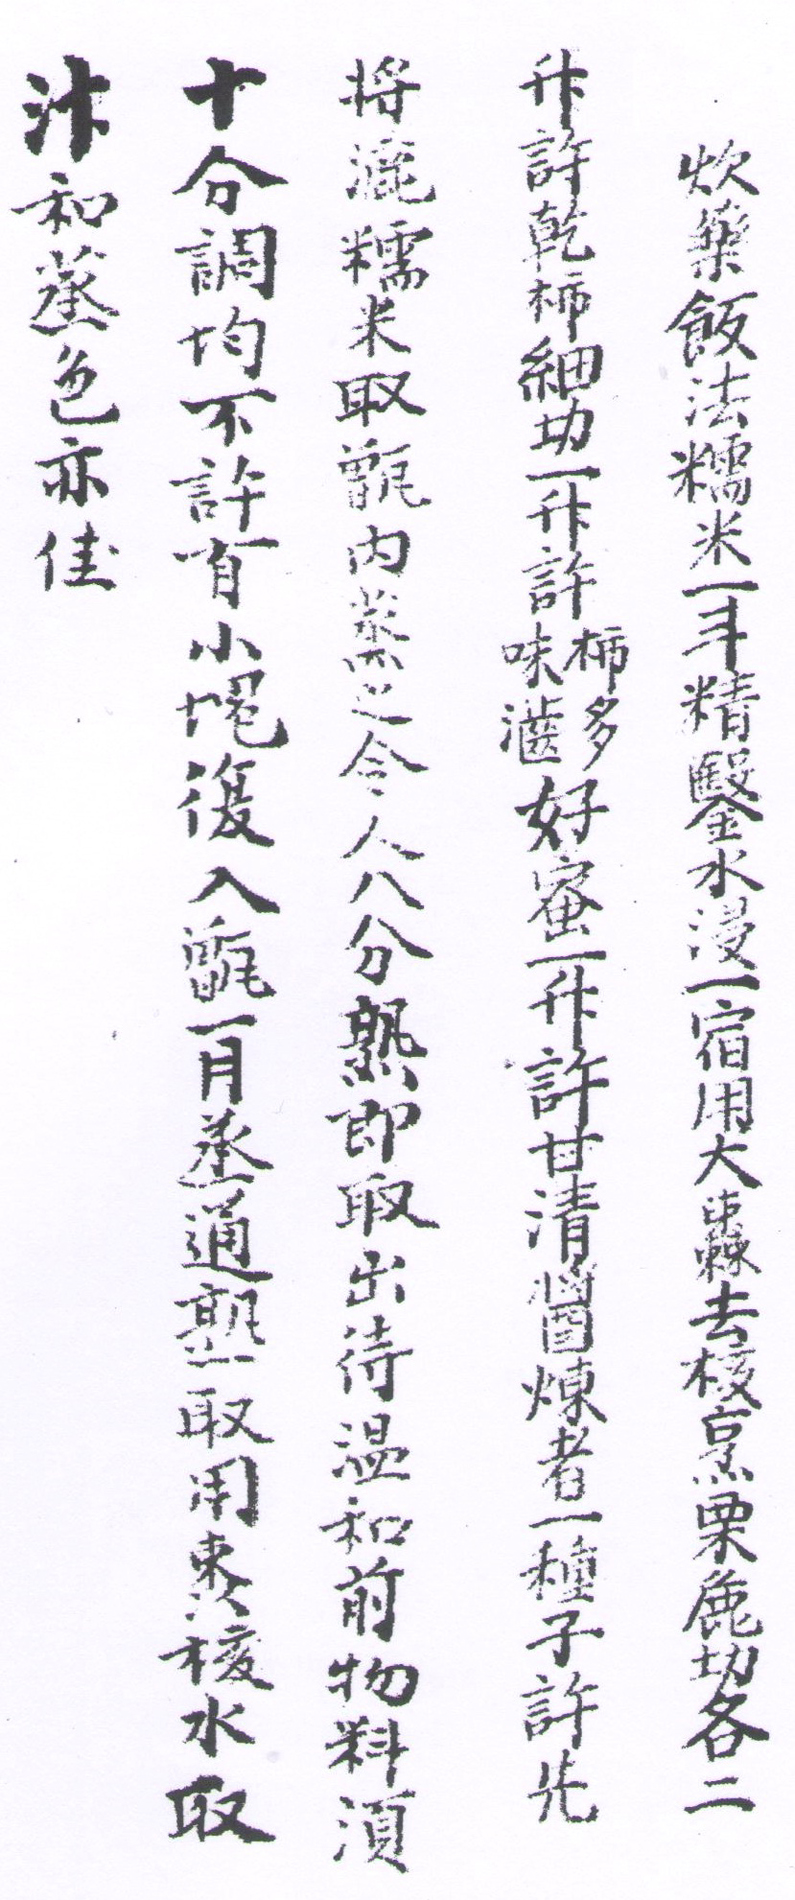 炊藥飯法糯米一斗精鑿水浸一宿用大棗去核烹栗麁切各二
升許乾柿細切一升許柿多味澁好蜜一升許甘清醬煉者一種子許先
将漉糯米取甑内蒸之令人八分熟即取出待温和前物料須
十分調均不許有小塊復入甑一月蒸通熟取用棗核水取
汁和蒸色亦佳